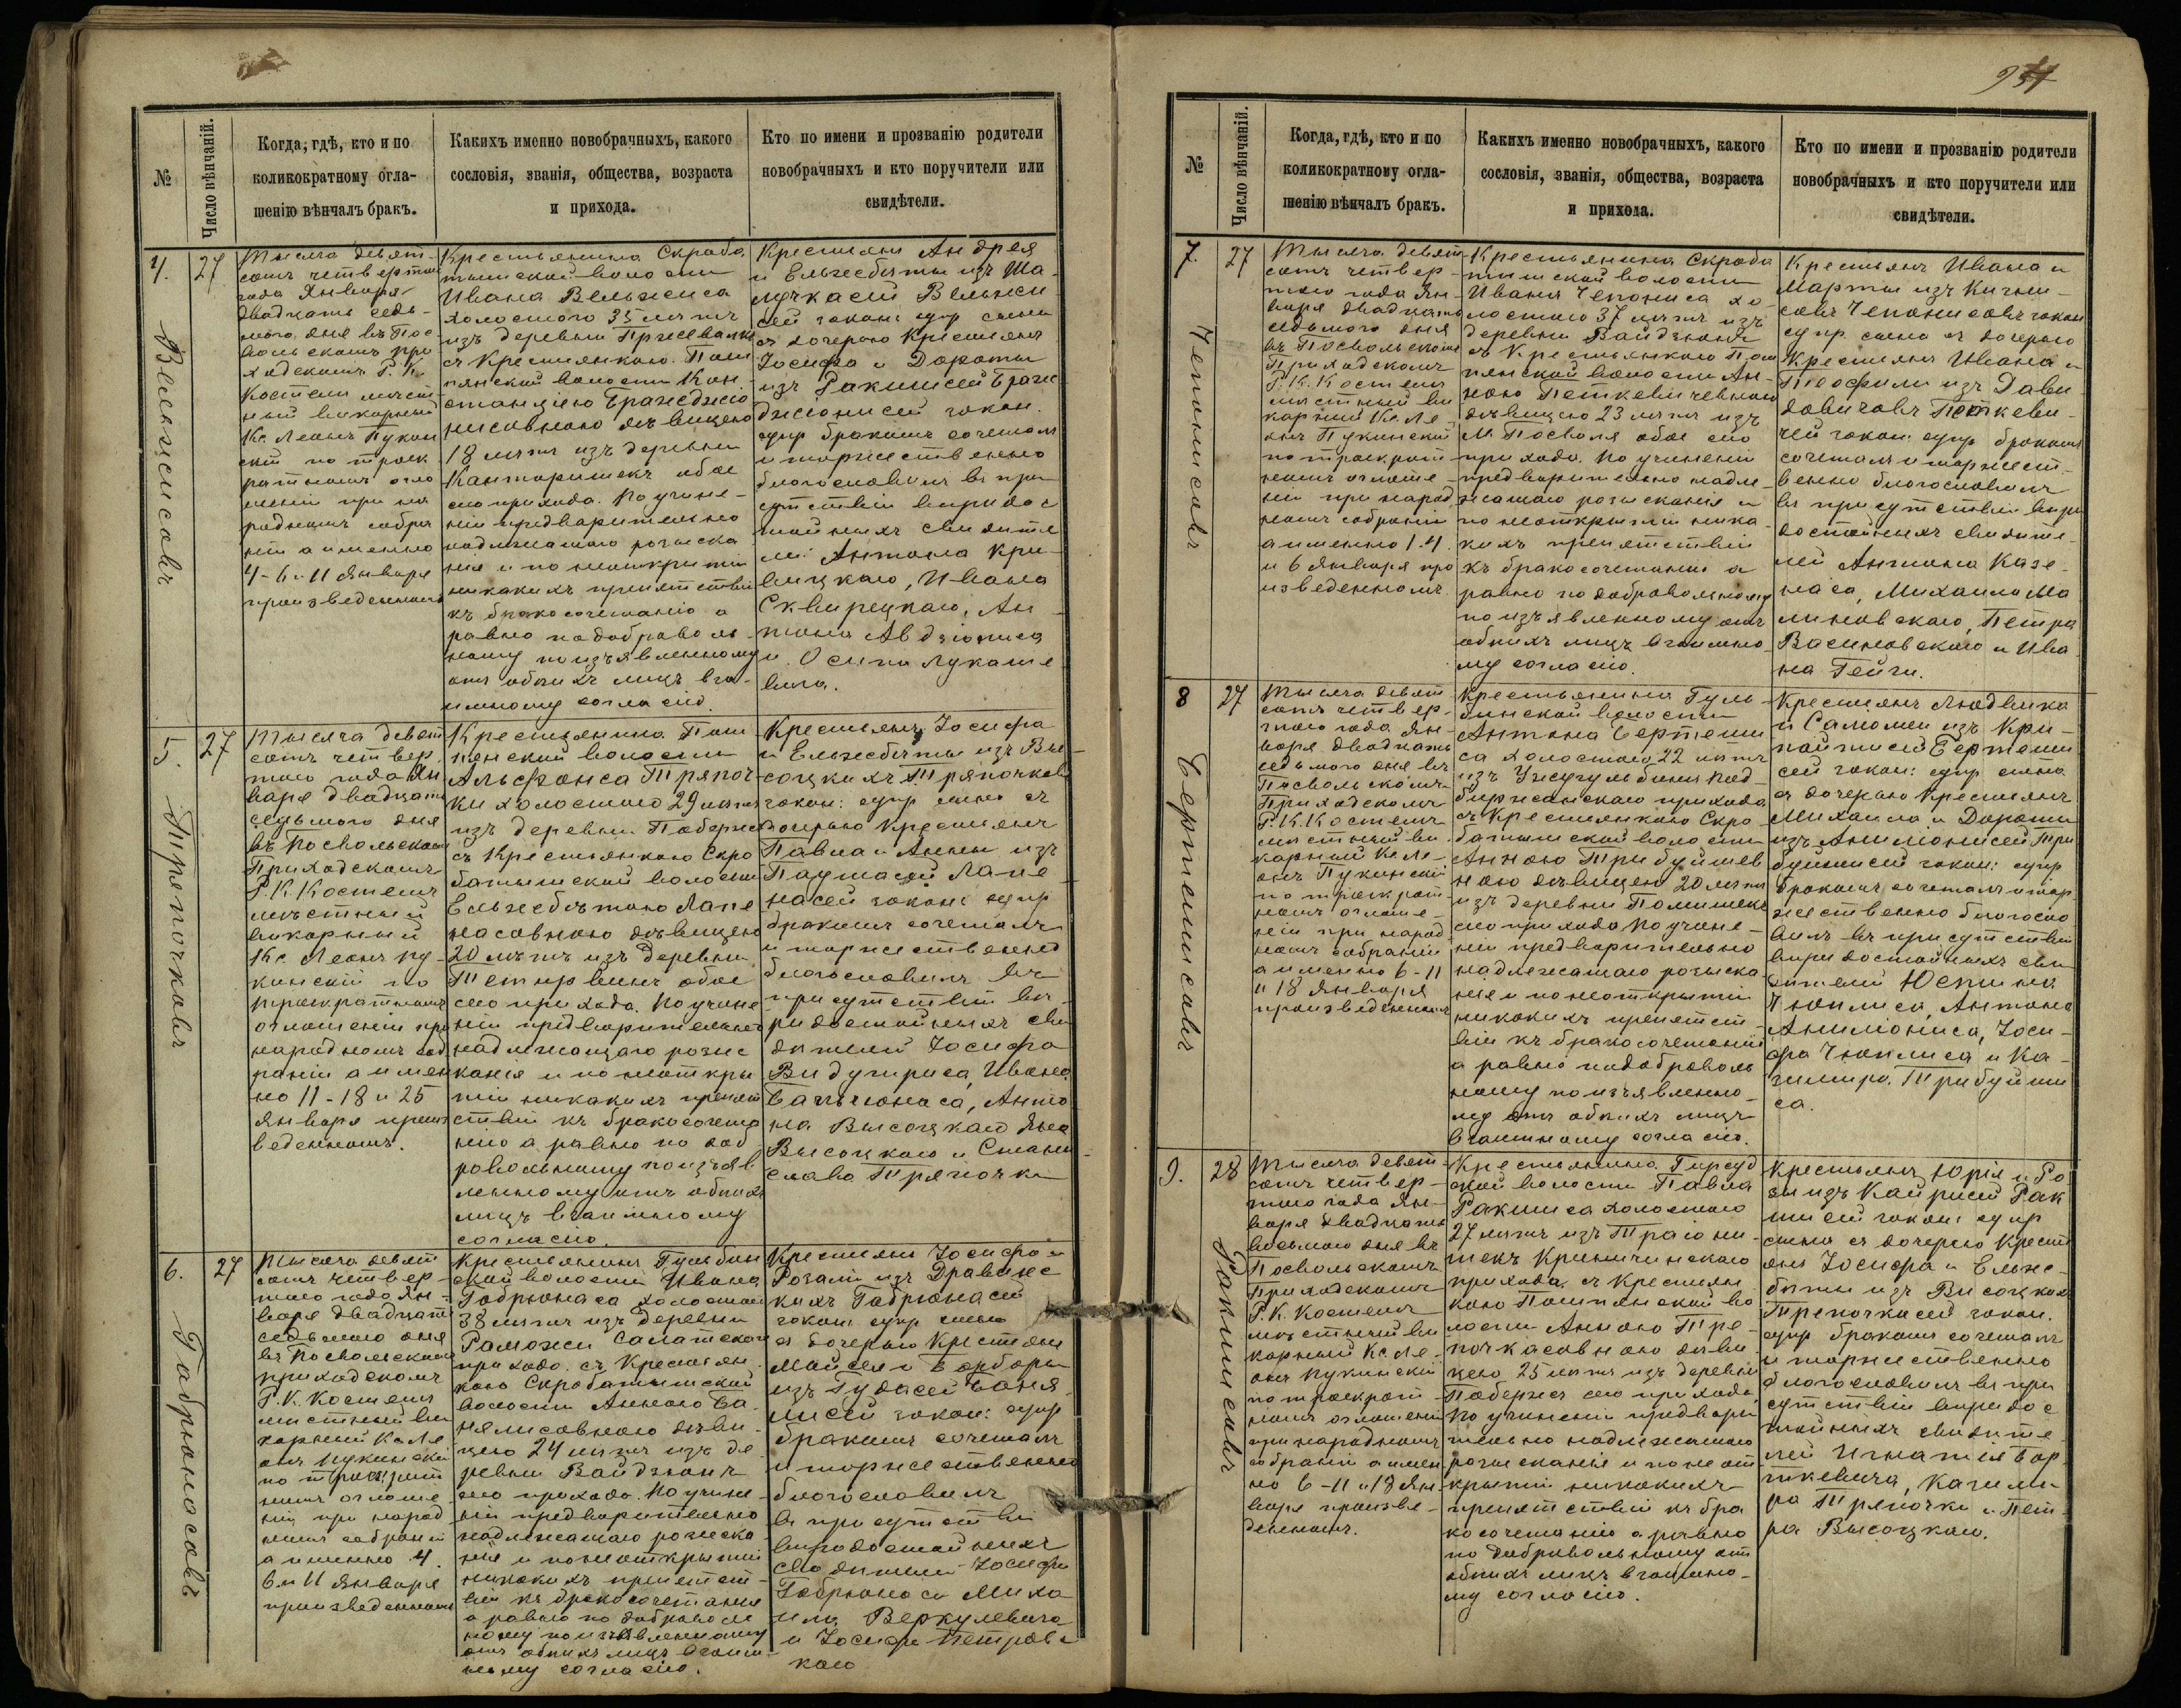 934
№
Число вѣнчаній.
Когда, гдѣ, кто и по
коликократному огла-
шенію вѣнчалъ бракъ.
Какихъ именно новобрачныхъ, какого
сословія, званія, общества, возраста
и прихода.
Кто по имени и прозванію родители
новобрачныхъ и кто поручители или
свидѣтели.
4.
27
Вельжисовъ
Тысяча девят-
сотъ четвертаго
года Января
двадцать седь-
мого дня въ Пос-
вольскомъ при
ходскомъ Р. К.
Костелѣ мѣст
ный викарный
Кс. Леонъ Пукин
скій по троек
ратномъ огла
шеніи при на
родномъ собра
ніи а именно
4-6 и 11 Января
произведенномъ
Крестьянина Скроба
тышской волости
Ивана Вельжиса
холостого 35 лѣтъ
изъ деревни
съ Крестьянкою Пом
пянской волости Кон
станціею
дѣвицею
18 лѣтъ изъ деревни
обое
сего прихода. По учине-
ніи предварительно
надлежащаго розыска
нія и по неоткрытіи
никакихъ препятствій
къ бракосочетанію а
равно по доброволь-
ному по изъявленному
отъ обоихъ лицъ вза-
имному согласію.
Крестьянъ Андрея
и Ельжбѣты изъ Ша-
Вельжи
сей закон: супр сына
съ дочерью Крестьянъ
Іосифа и Дороты
изъ Ракшисей
закон.
супр бракомъ сочеталъ
и торжественно
благословилъ въ при
сутствіи виридос
тойныхъ свидѣте
лей Антона Кри-
вицкаго, Ивана
Сквирецкаго, Ан-
тона Авдзіониса
и Осипа Лукаше
вича.
5.
27
Тряпочковъ
Тысяча девят
сотъ четвер
таго года Ян
варя двадцать
седьмого дня
въ Посвольскомъ
Приходскомъ
Р. К. Костелѣ
мѣстный
викарный
Кс. Леонъ Пу-
кинскій по
троекратномъ
оглашеніи при
народномъ соб
раніи а имен
но 11-18 и 25
Января произ
веденномъ.
Крестьянина Пом
пянской волости
Альфонса Тряпоч
ки холостого 29 лѣтъ
изъ деревни Паберже
съ Крестьянкою Скро
батышской волости
Ельжбѣтою Лапе
насовною дѣвицею
20 лѣтъ изъ деревни
обое
сего прихода. По учине
ніи предварительно
надлежащаго розыс
канія и по неоткры
тіи никакихъ препят
ствій къ бракосочета
нію а равно по доб
ровольному по изъяв
ленному отъ обоихъ
лицъ взаимному
согласію.
Крестьянъ Іосифа
и Ельжбѣты изъ Вы-
соцкихъ Тряпочковъ
закон: супр сына съ
дочерью Крестьянъ
Павла и Анны изъ
Лапе
насей закон: супр
бракомъ сочеталъ
и торжественно
благословилъ въ
присутствіи ви
ридостойныхъ сви
дѣтелей Іосифа
Видугириса, Ивана
Анто
на Высоцкаго Яна
Высоцкаго и Стани
слава Тряпочки
6.
27
Габрюнасовъ
Тысяча девят
сотъ четвер-
таго года Ян-
варя двадцать
седьмого дня
въ Посвольскомъ
приходскомъ
Р. К. Костелѣ
мѣстный ви
карный Кс Ле
онъ Пукинскій
по троекрат
номъ оглаше
ніи при народ
номъ собраніи
а именно 4.
6 и 11 Января
произведенномъ
Крестьянина Гульбин
ской волости Ивана
Габрюнаса холостого
38 лѣтъ изъ деревни
Раможи Салатскаго
прихода съ Крестьян
кою Скробатышской
волости Анною Ба
нялисовною дѣви
цею 24 лѣтъ изъ де
ревни Вайдзюнъ
сего прихода. По учине
ніи предварительно
надлежащаго розыска
нія и по неоткрытіи
никакихъ препятст
вій къ бракосочетанію
а равно по доброволь
ному по изъявленному
отъ обоихъ лицъ взаим
ному согласію.
Крестьянъ Іосифа и
Розаліи изъ Дравинс
кихъ Габрюнасей
закон: супр сына
съ дочерью Крестьянъ
Мойсея и Барбары
изъ Гудасей Баня
лисей закон: супр
бракомъ сочеталъ
и торжественно
благословилъ
въ присутствіи
виридостойныхъ
свидѣтелей Іосифа
Габрюнаса Миха
ила Веркулевича
и Іосифа Петровс
каго
№
Число вѣнчаній.
Когда, гдѣ, кто и по
коликократному огла-
шенію вѣнчалъ бракъ.
Какихъ именно новобрачныхъ, какого
сословія, званія, общества, возраста
и прихода.
Кто по имени и прозванію родители
новобрачныхъ и кто поручители или
свидѣтели.
7.
27
Чепонисовъ
Тысяча девят
сотъ четвер-
таго года Ян-
варя двадцать
седьмого дня
въ Посвольскомъ
Приходскомъ
Р. К. Костелѣ
мѣстный ви
карный Кс Ле-
онъ Пукинскій
по троекрат
номъ оглаше-
ніи при народ
номъ собраніи
а именно 1. 4.
и 6 Января про
изведенномъ.
Крестьянина Скроба
тышской волости
Ивана Чепониса хо-
лостого 37 лѣтъ изъ
деревни Вайдзюнъ
съ Крестьянкою Пом
пянской волости Ан-
ною Петкевичевною
дѣвицею 23 лѣтъ изъ
М. Посволя обое сего
прихода. По учиненіи
предварительно надле-
жащаго розысканія и
по неоткрытіи ника-
кихъ препятствій
къ бракосочетанію а
равно по добровольному
по изъявленному отъ
обоихъ лицъ взаимно-
му согласію.
Крестьянъ Ивана и
Марты изъ
Чепонисовъ закон
супр. сына съ дочерью
Крестьянъ Ивана и
Теофили изъ Дави
довичовъ Петкеви-
чей закон: супр бракомъ
сочеталъ и торжест-
венно благословилъ
въ присутствіи вири
достойныхъ свидѣте-
лей Антона Казе-
наса, Михаила Ма
линовскаго, Петра
Васиновскаго и Ива
на Гейги.
8
27
Бертешисовъ
Тысяча девят
сотъ четвер-
таго года Ян-
варя двадцать
седьмого дня въ
Посвольскомъ
Приходскомъ
Р. К. Костелѣ
мѣстный ви
карный Кс Ле-
онъ Пукинскій
по троекрат
номъ оглаше-
ніи при народ
номъ собраніи
а именно 6-11
и 18 Января
произведенномъ
Крестьянина Гуль-
бинской волости
Антона Бертеши
са холостого 22 лѣтъ
изъ Ужугульбинъ Под
биржанскаго прихода
съ Крестьянкою Скро
батышской волости
Анною Трибуйшев
ною дѣвицею 20 лѣтъ
изъ деревни Помишекъ
сего прихода По учине-
ніи предварительно
надлежащаго розыска
нія и по неоткрытіи
никакихъ препятст-
вій къ бракосочетанію
а равно по доброволь
ному по изъявленно-
му отъ обоихъ лицъ
взаимному согласію.
Крестьянъ Людвика
и Саломеи изъ Кри-
Бертеши
сей закон: супр сына
съ дочерью Крестьянъ
Михаила и Дороты
изъ Анилёнисей Три
буйшисей закон: супр
бракомъ сочеталъ и тор
жественно благосло
вилъ въ присутствіи
виридостойныхъ сви
дѣтелей Юстина
Чюплиса, Антона
Анилёниса, Іоси-
фа Чюплиса и Ка-
зимира Трибуйши
са.
9.
28
Ракшисовъ
Тысяча девят-
сотъ четвер-
таго года Ян-
варя двадцать
восьмого дня въ
Посвольскомъ
Приходскомъ
Р. К. Костелѣ
мѣстный ви
карный Кс Ле-
онъ Пукинскій
по троекрат
номъ оглашеніи
при народномъ
собраніи а имен
но 6-11 и 18 Ян
варя произве-
денномъ.
Крестьянина Гируд
ской волости Павла
Ракшиса холостого
27 лѣтъ изъ
Криничинскаго
прихода съ Крестьян
кою Помпянской во
лости Анною Тре-
почкасовною дѣви
цею 25 лѣтъ изъ деревни
Паберже сего прихода
По учиненіи предвари
тельно надлежащаго
розысканія и по неот
крытіи никакихъ
препятствій къ бра
косочетанію а равно
по добровольному отъ
обоихъ лицъ взаимно-
му согласію.
Крестьянъ Юрія и Ро
зы изъ Кайрисей Рак
шисей закон: супр
сына съ дочерью Крест
янъ Іосифа и Ельж-
бѣты изъ Высоцкихъ
Трепочкасей закон.
супр бракомъ сочеталъ
и торжественно
благословилъ въ при
сутствіи виридос
тойныхъ свидѣте
лей Игнатія Бар
ткевича, Казими
ра Тряпочки и Пет
ра Высоцкаго.